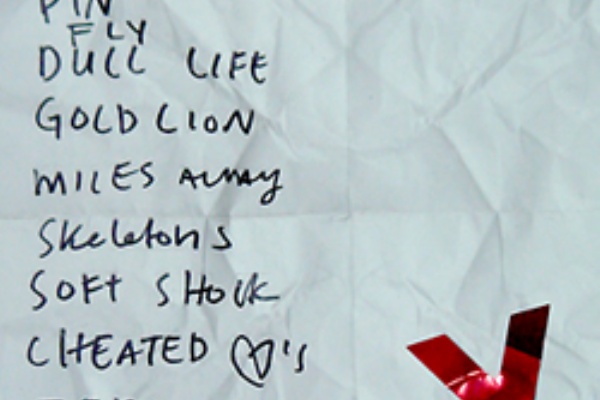 PIN
FLY
DULL LIFE
GOLD LION
MILES AWAY
Skeletons
SOFT SHOCK
CHEATED ♡'s